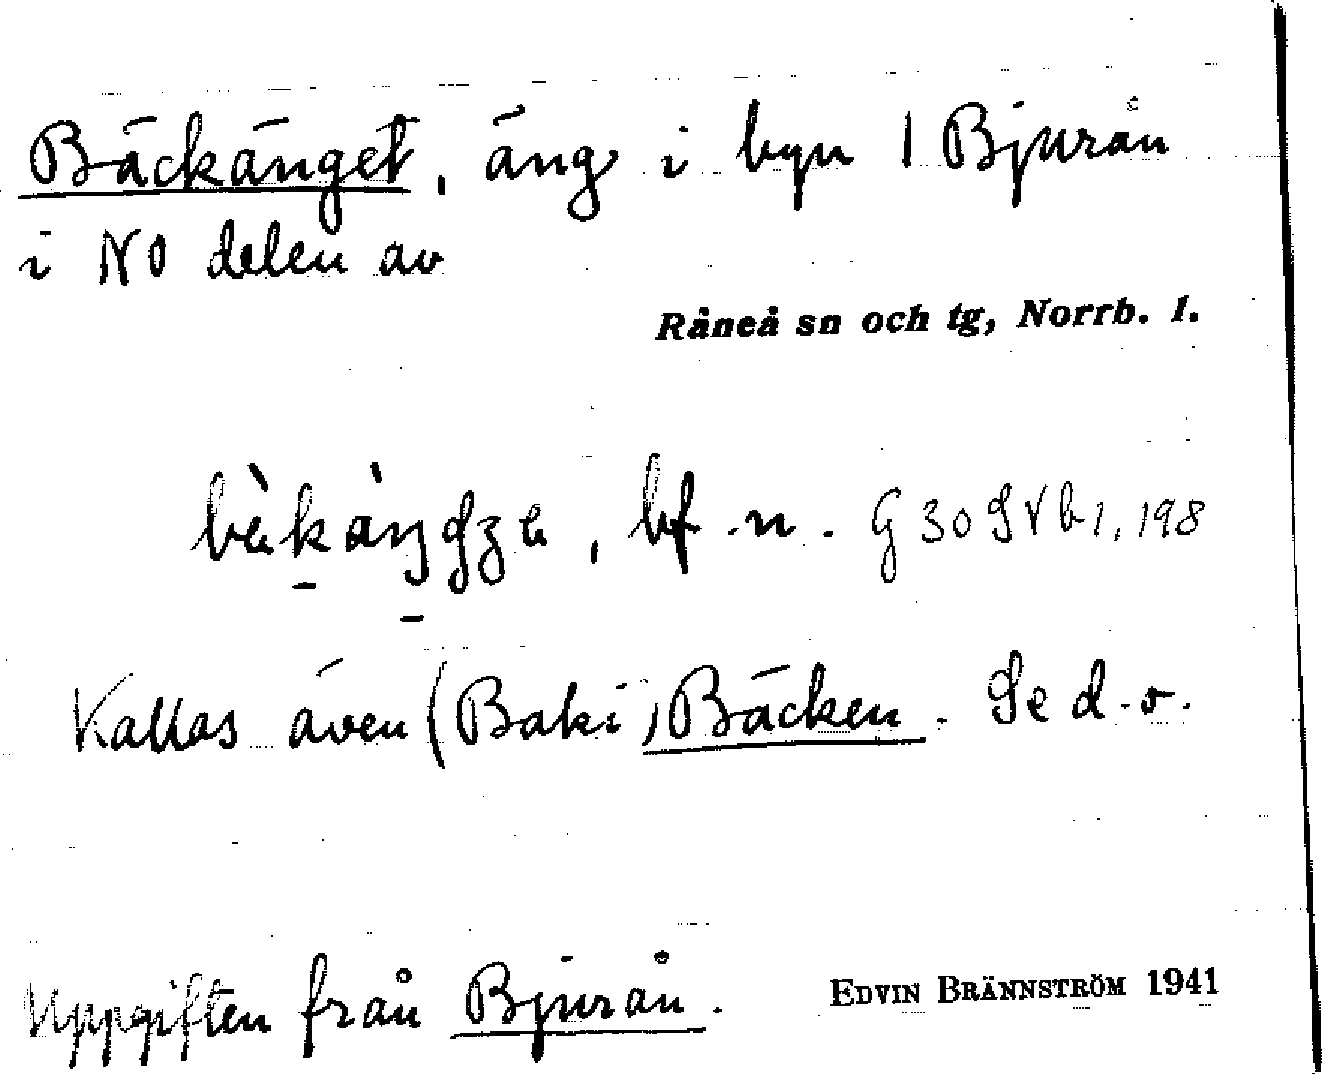 Bäckänget, äng i byn | Bjurån
i NO delen av
Råneå sn och tg, Norrb. l.
bf. n. G 30 S V b 1, 198
Kallas även (Baki) Bäcken. Se d. o.
Uppgiften från Bjurån.
EDVIN BRÄNNSTRÖM 1941